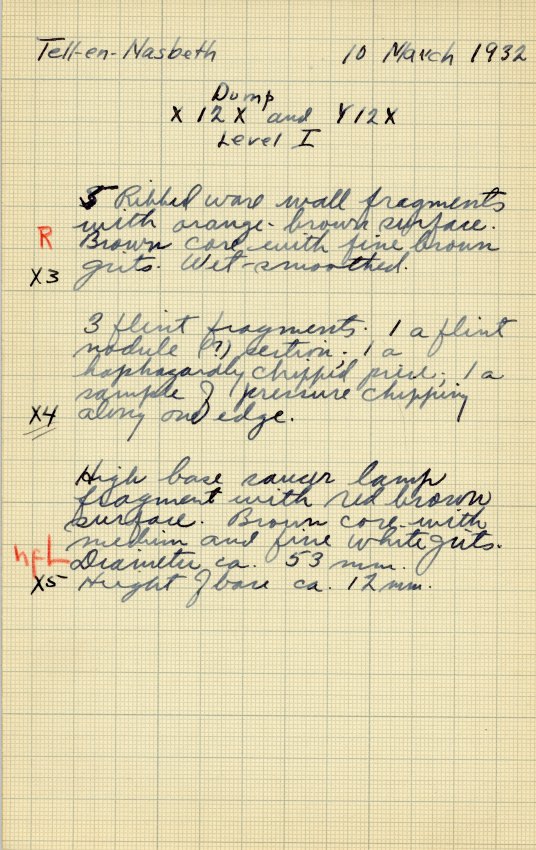 Tell-en-Nasbeth 10 March 1932
Dump
X 12 X and Y12X
Level I
5 Ribbed ware wall fragments
with orange-brown surface.
R Brown core with fine brown
X3 grits. Wet-smoothed.
3 flint fragments. 1 a flint
nodule (?) section; 1 a
haphazardly chipp'd piece; 1 a
sample of pressure chipping
X4 along one edge.
High base saucer lamp
fragment with red brown
surface. Brown core with
medium and fine white grits.
hfL Diameter ca. 53 mm.
X5 Height of base ca. 12 mm.